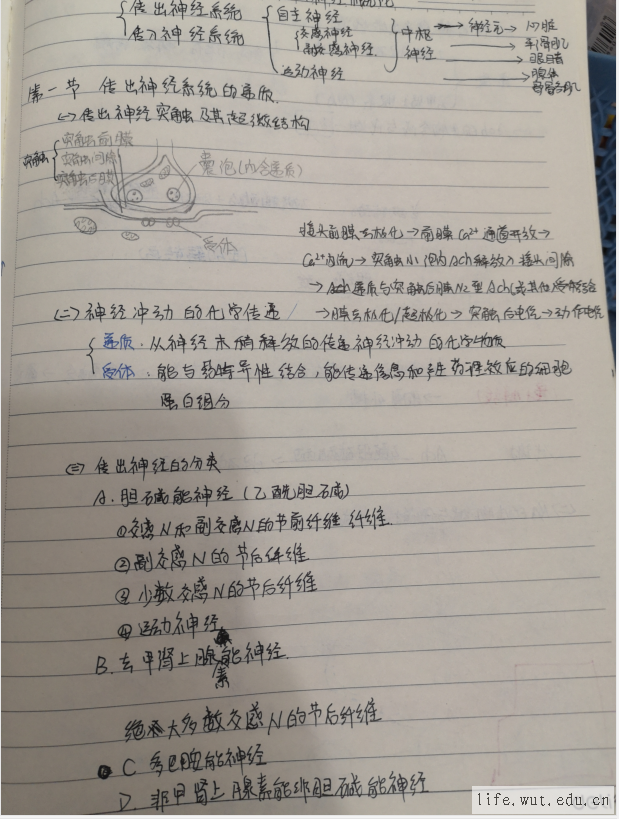 传出神经系统
传入神经系统
自主神经
交感神经
副交感神经
运动神经
中枢
神经
神经元
心脏
平滑肌
眼睛
腺体
骨骼肌
第一节 传出神经系统的递质
(一)传出神经突触及其超微结构
突触
突触前膜
突触间隙
突触后膜
囊泡(内含递质)
受体
接头前膜去极化→前膜Ca²⁺通道开放→
Ca²⁺内流→突触小泡内Ach释放入接头间隙
→Ach递质与突触后膜N₂型Ach(或其他)受体结合
→膜去极化/超极化→突触后电位→动作电位
(二)神经冲动的化学传递
递质:从神经末梢释放的传递神经冲动的化学物质
受体:能与药特异性结合,能传递信息和产生药理效应的细胞
蛋白组分
(三)传出神经的分类
A.胆碱能神经(乙酰胆碱)
①交感N和副交感N的节前纤维 纤维
②副交感N的节后纤维
③少数交感N的节后纤维
④运动神经
B.去甲肾上腺素能神经
绝大多数交感N的节后纤维
C 多巴胺能神经
D.非甲肾上腺素能非胆碱能神经
life.wut.edu.cn